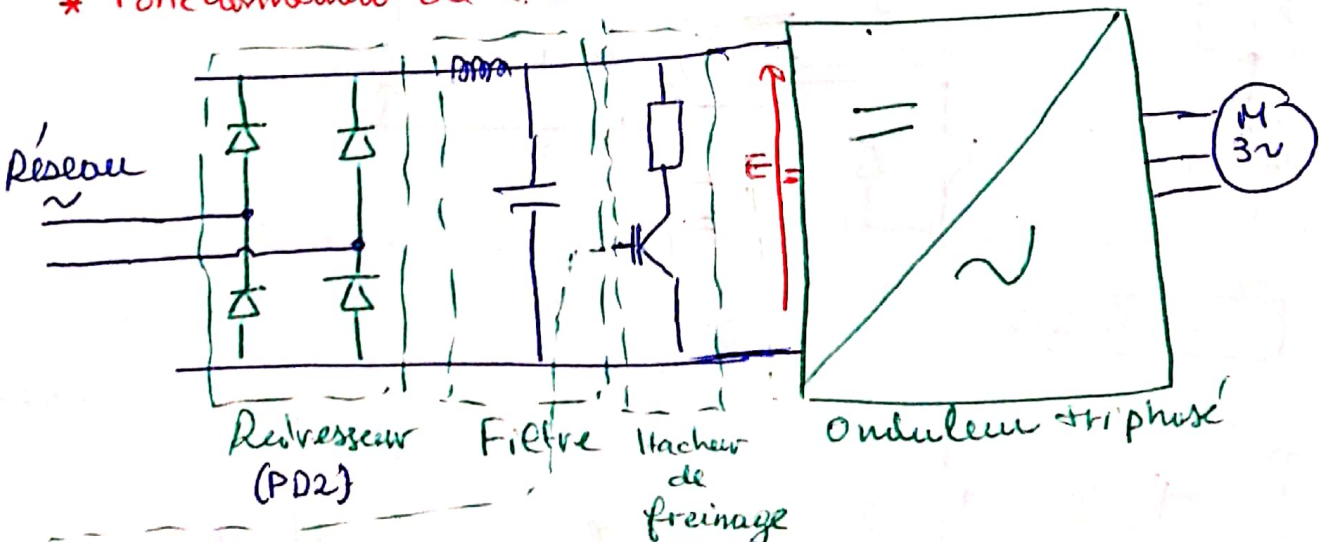 * Fonctionnement
Réseau
~
E
=
~
M
3~
Redresseur
(PD2)
Filtre
Hacheur
de
freinage
Onduleur triphasé